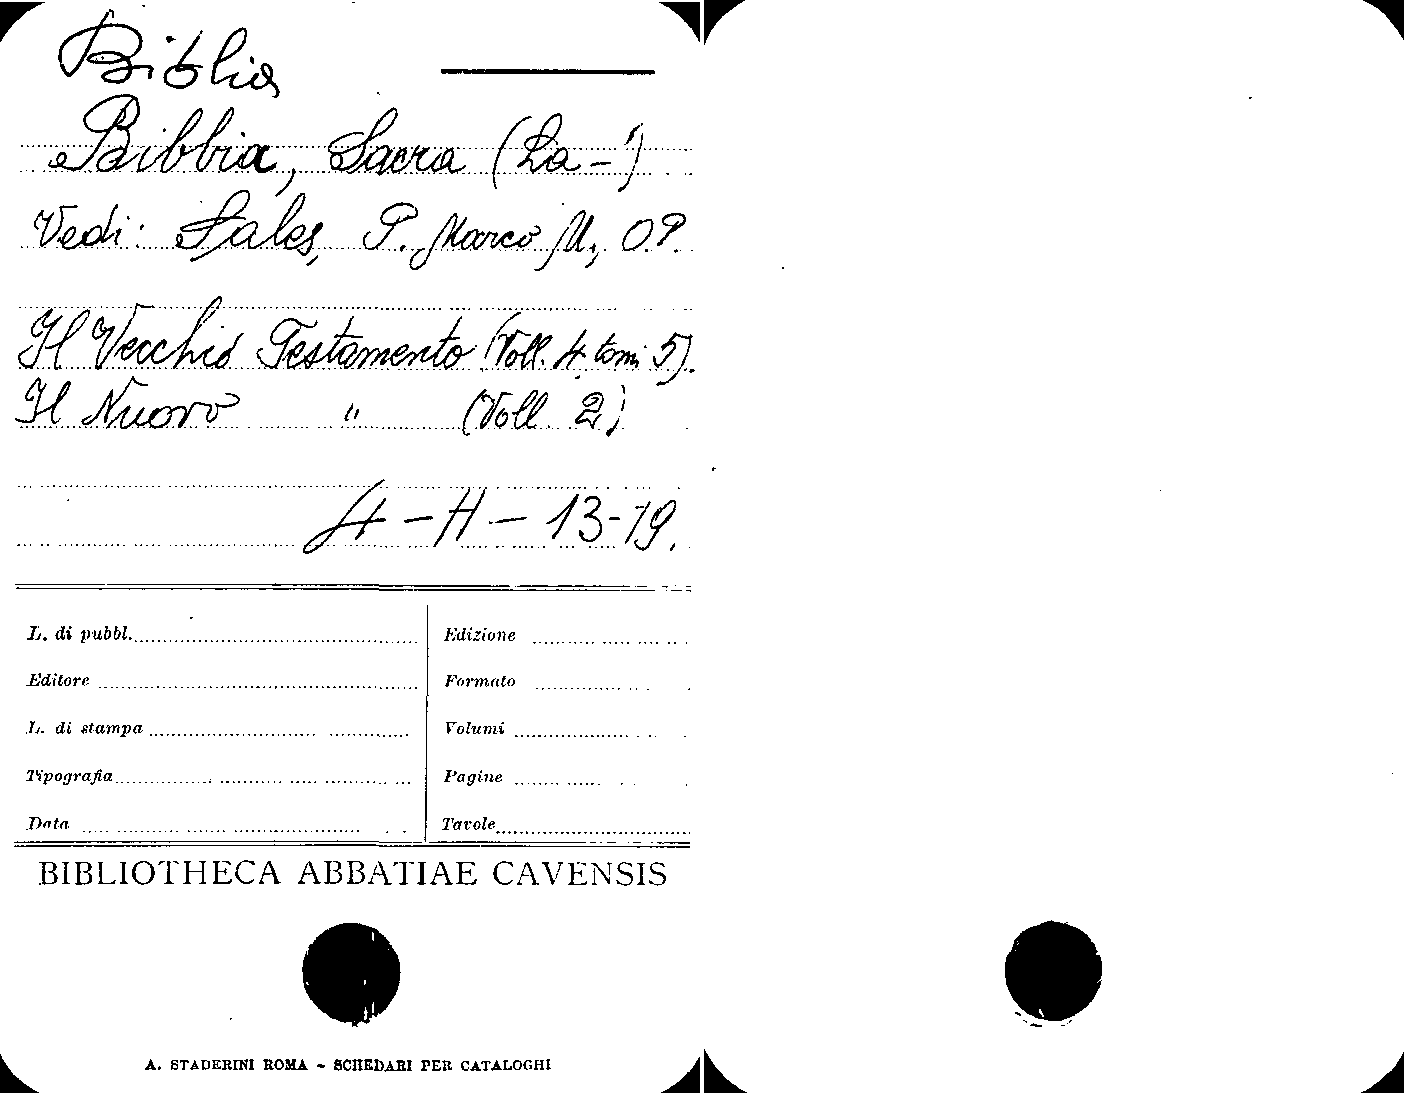 Biblia
Bibbia, Sacra (La-)
Vedi: Sales, P. Marco M., O.P.
Il Vecchio Testamento (Voll. 4 tomi 5).
Il Nuovo " (Voll. 2)
4 - H - 13-19.
L. di pubbl.
Edizione
Editore
Formato
L. di stampa
Volumi
Tipografia
Pagine
Data
Tavole
BIBLIOTHECA ABBATIAE CAVENSIS
A. STADERINI ROMA - SCHEDARI PER CATALOGHI